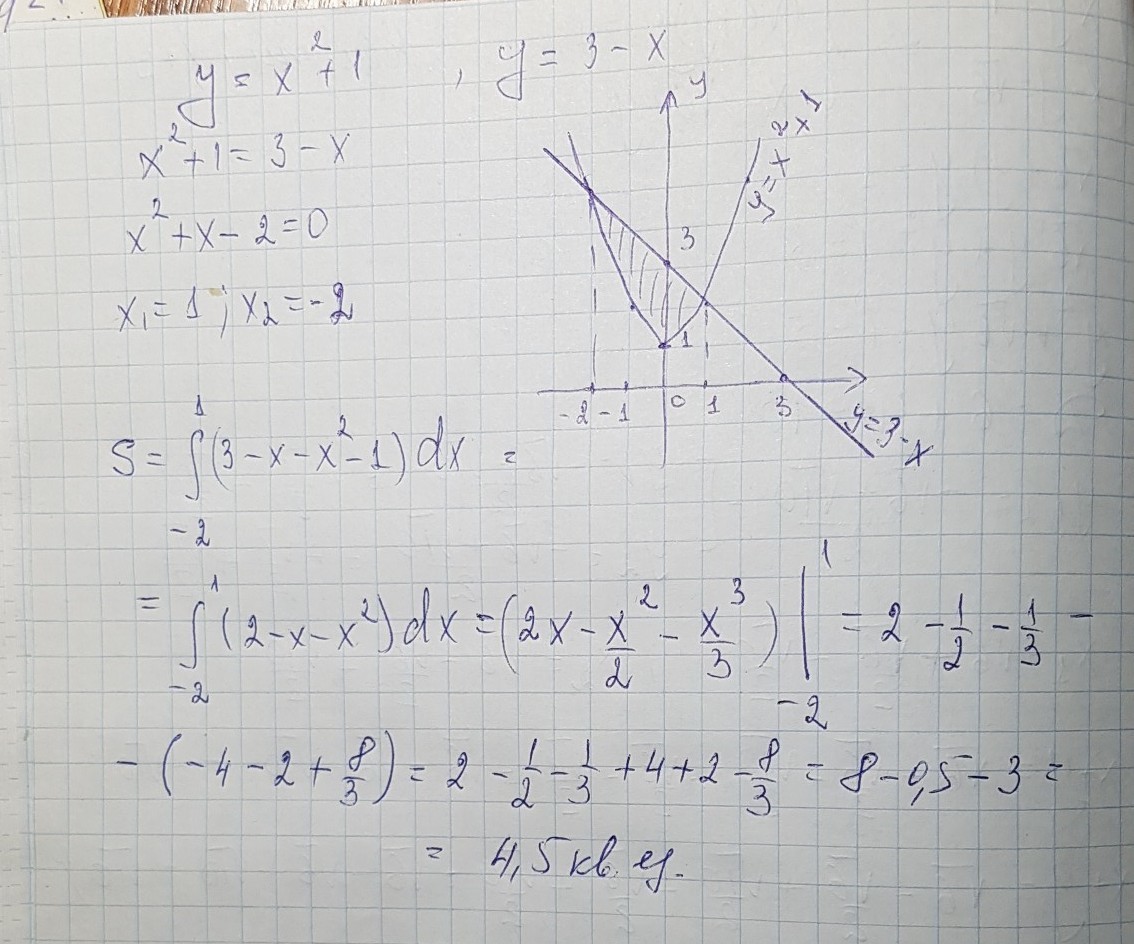 y = x² + 1 , y = 3 - x
x² + 1 = 3 - x
x² + x - 2 = 0
x₁ = 1 ; x₂ = -2
y
y = x² x 1
3
1
-2 -1 0 1 3
y = 3 - x
S = ∫₋₂¹ (3 - x - x² - 1) dx =
= ∫₋₂¹ (2 - x - x²) dx = (2x - x²/2 - x³/3) |₋₂¹ = 2 - 1/2 - 1/3 -
- (-4 - 2 + 8/3) = 2 - 1/2 - 1/3 + 4 + 2 - 8/3 = 8 - 0,5 - 3 =
= 4,5 кв. ед.